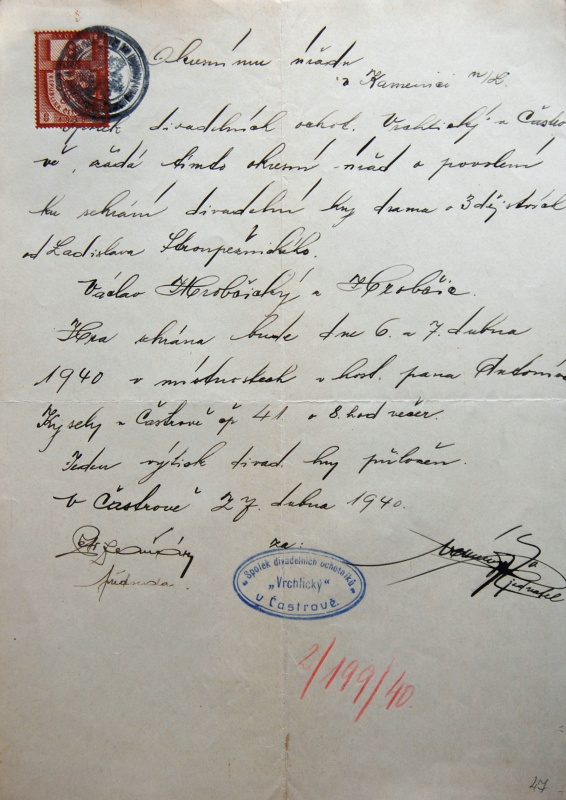 Okresnímu úřadu
v Kamenici n/L.
Spolek divadelních ochot. Vrchlický v Častro
vě, žádá tímto okresní úřad o povolení
ku sehrání divadelní hry drama o 3 dějstvích
od Ladislava Stroupežnického.
Václav Hrobčický z Hrobčic.
Hra sehrána bude dne 6. a 7. dubna
1940 v místnostech v host. pana Antonína
Kysely v Častrově čp 41 o 8. hod večer.
Jeden výtisk divad. hry přiložen.
V Častrově 27. dubna 1940.
za:
předseda
jednatel
"Spolek divadelních ochotníků
"Vrchlický"
v Častrově.
2/199/40.
47
8